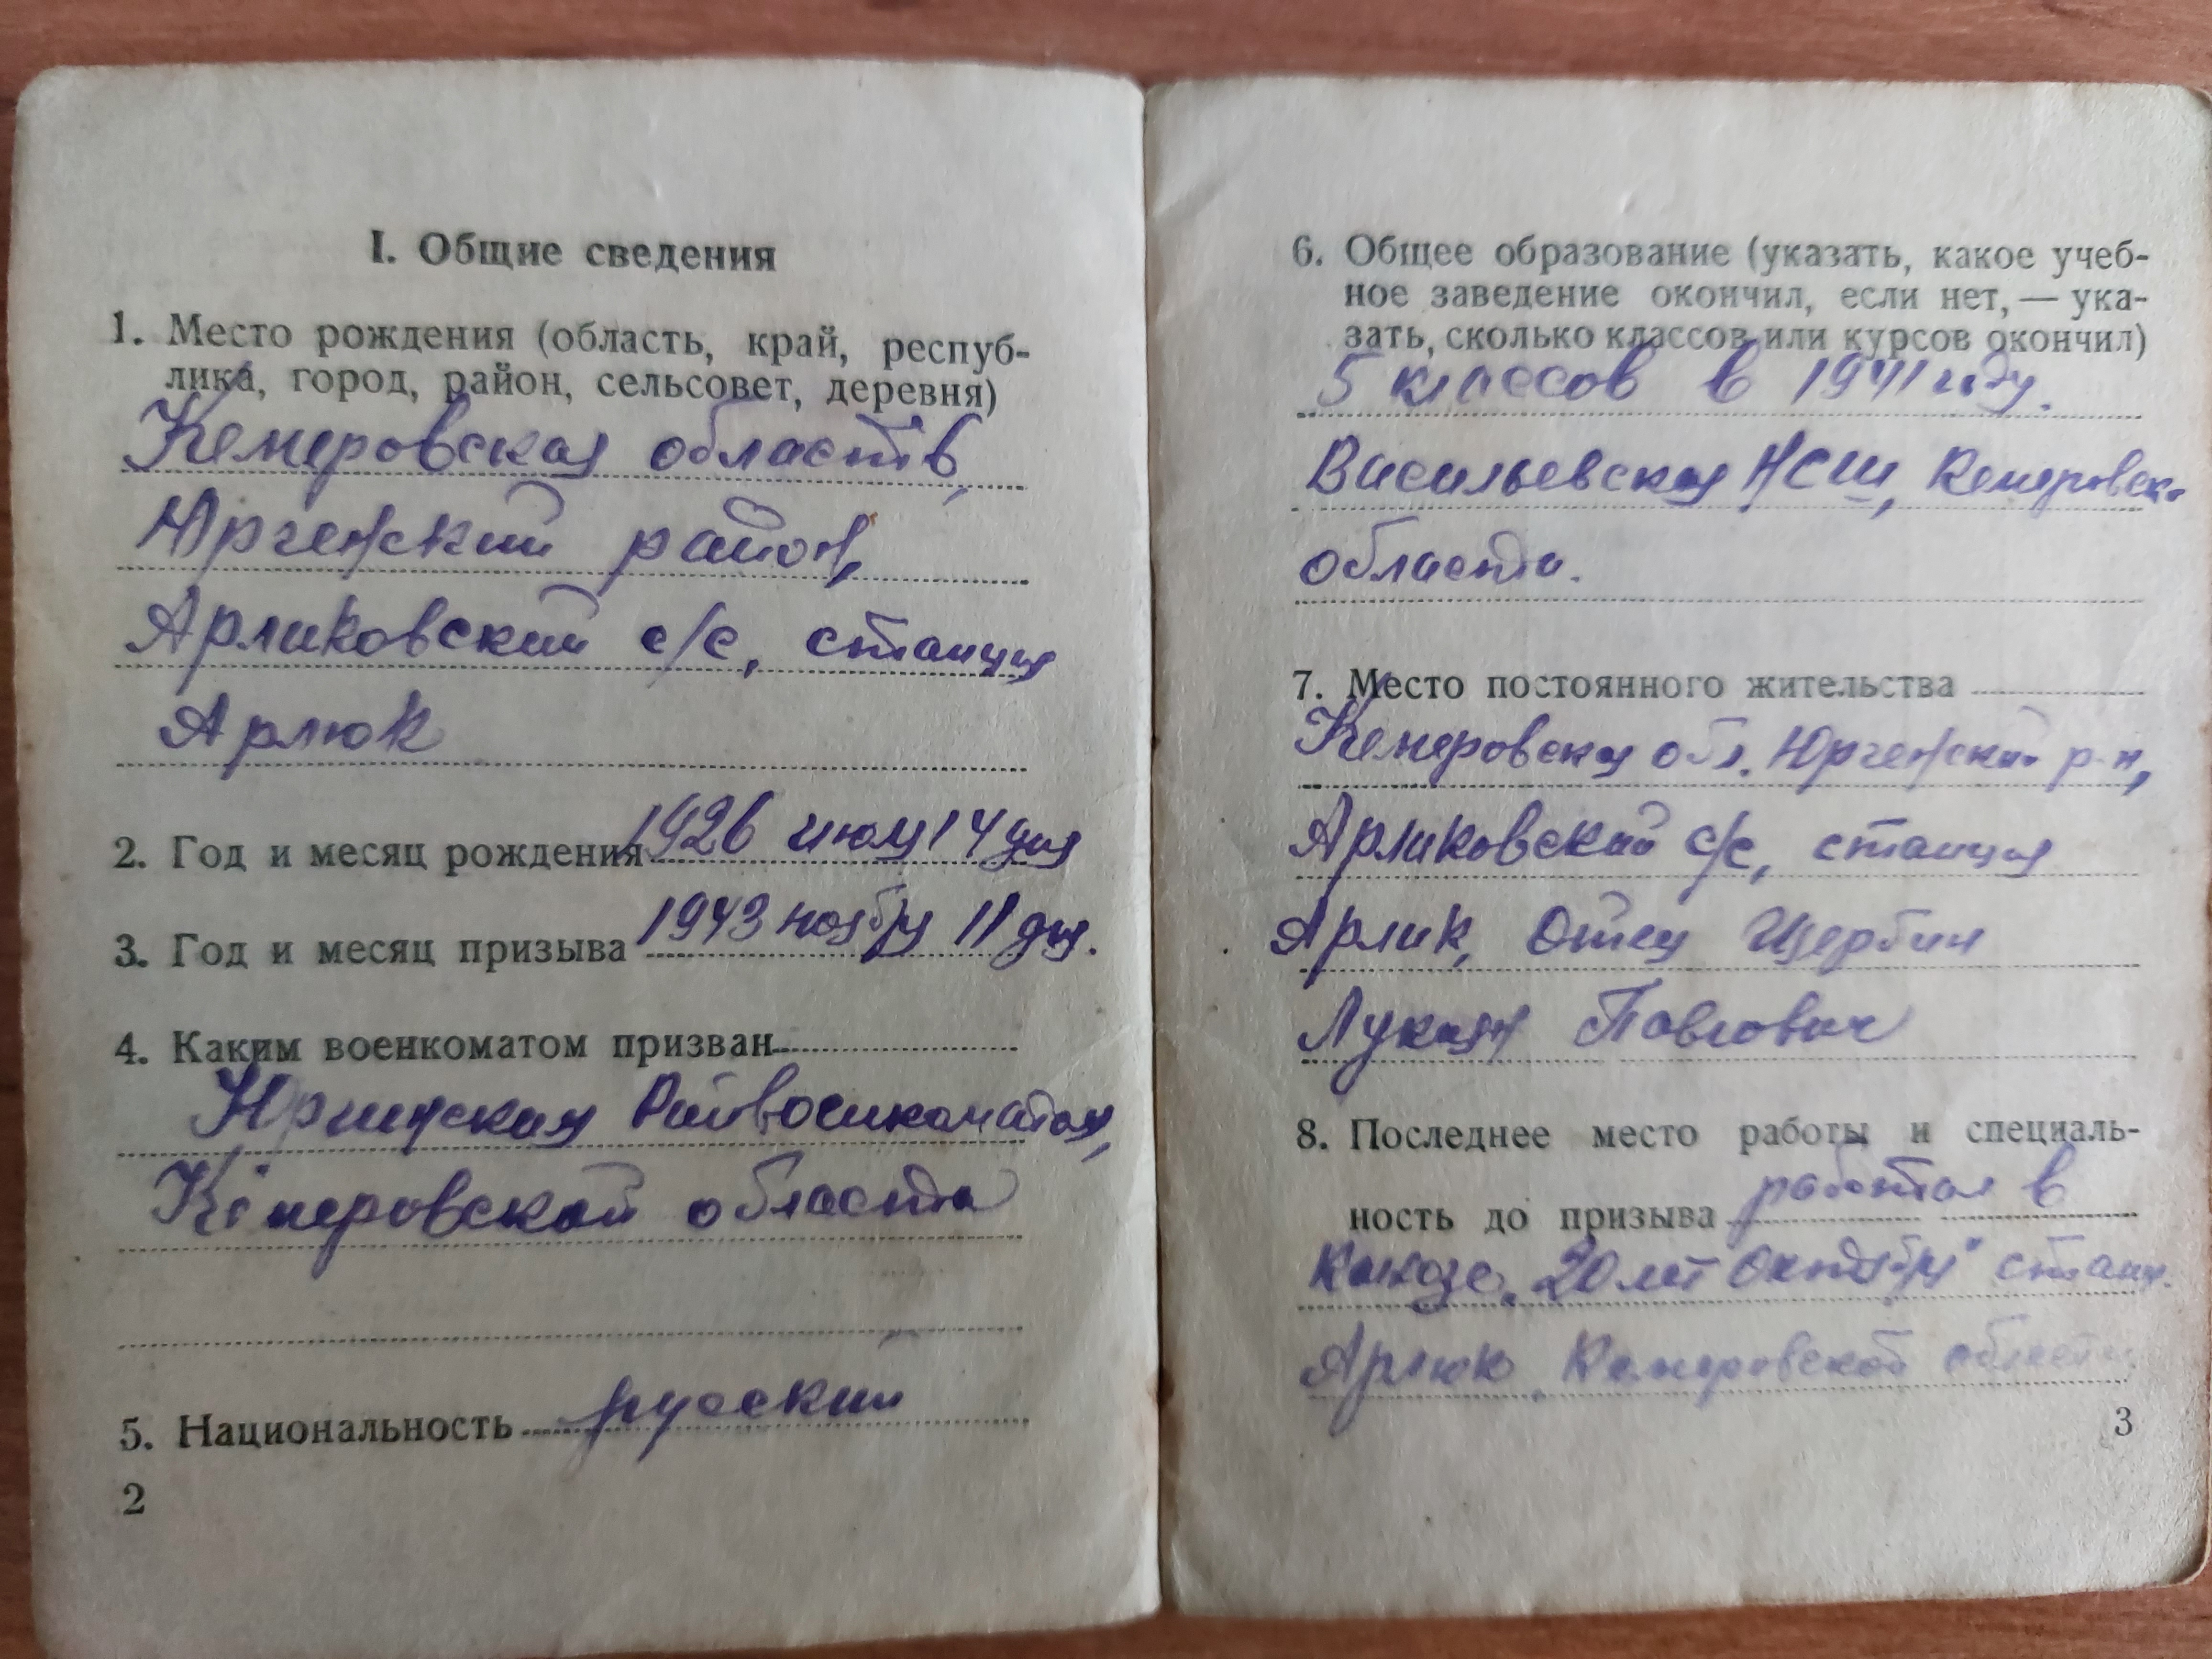 I. Общие сведения
1. Место рождения (область, край, респуб-
лика, город, район, сельсовет, деревня)
Кемеровская область,
Юргенский район,
Арликовский с/с, станция
Арлюк
2. Год и месяц рождения 1926 июля 14 дня
3. Год и месяц призыва 1943 ноября 11 дня.
4. Каким военкоматом призван
Юргинским Райвоенкоматом,
Кемеровской области
5. Национальность русский
2
6. Общее образование (указать, какое учеб-
ное заведение окончил, если нет, — ука-
зать, сколько классов или курсов окончил)
5 классов в 1941 году.
Васильевская НСШ, Кемеровск.
области.
7. Место постоянного жительства
Кемеровская обл. Юргенский р-н,
Арликовский с/с, станция
Арлик, Отец Щербин
Лукаян Павлович
8. Последнее место работы и специаль-
ность до призыва работал в
колхозе „20 лет Октября" станц.
Арлюк, Кемеровской области
3